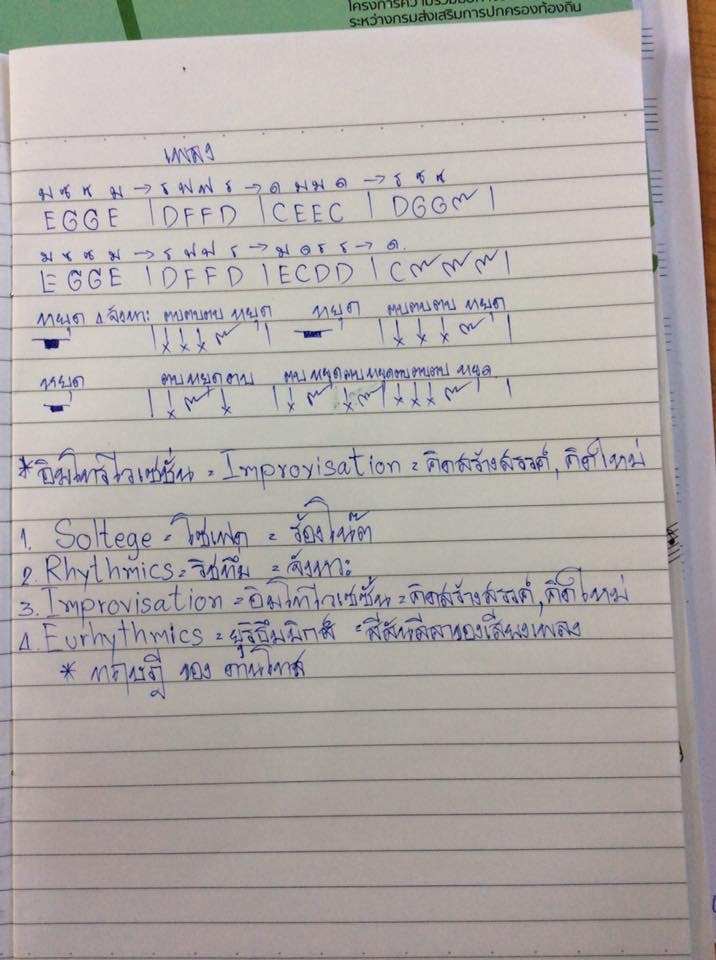 โครงการความร่วมมือทาง
ระหว่างกรมส่งเสริมการปกครองท้องถิ่น
เพลง
ม ซ ซ ม → ร ฟ ฟ ร → ด ม ม ด → ร ซ ซ
EGGE | DFFD | CEEC | DGG |
ม ซ ซ ม → ร ฟ ฟ ร → ม ด ร ร → ด.
EGGE | DFFD | ECDD | C |
หยุด 4 จังหวะ ตบตบตบ หยุด หยุด ตบตบตบ หยุด
| x x x | | x x x |
หยุด ตบ หยุด ตบ ตบ หยุด ตบ หยุด ตบตบตบ หยุด
| x x | x x | x x x |
*อิมโพรไวเซชั่น = Improvisation = คิดสร้างสรรค์, คิดใหม่
1. Soltege = โซเฟด = ร้องโน๊ต
2. Rhythmics = ริชทึม = จังหวะ
3. Improvisation = อิมโพไวเซชั่น = คิดสร้างสรรค์, คิดใหม่
4. Eurhythmics = ยูริธึมมิกส์ = สีสันลีลาของเสียงเพลง
* ทฤษฎี ของ ดานโทส